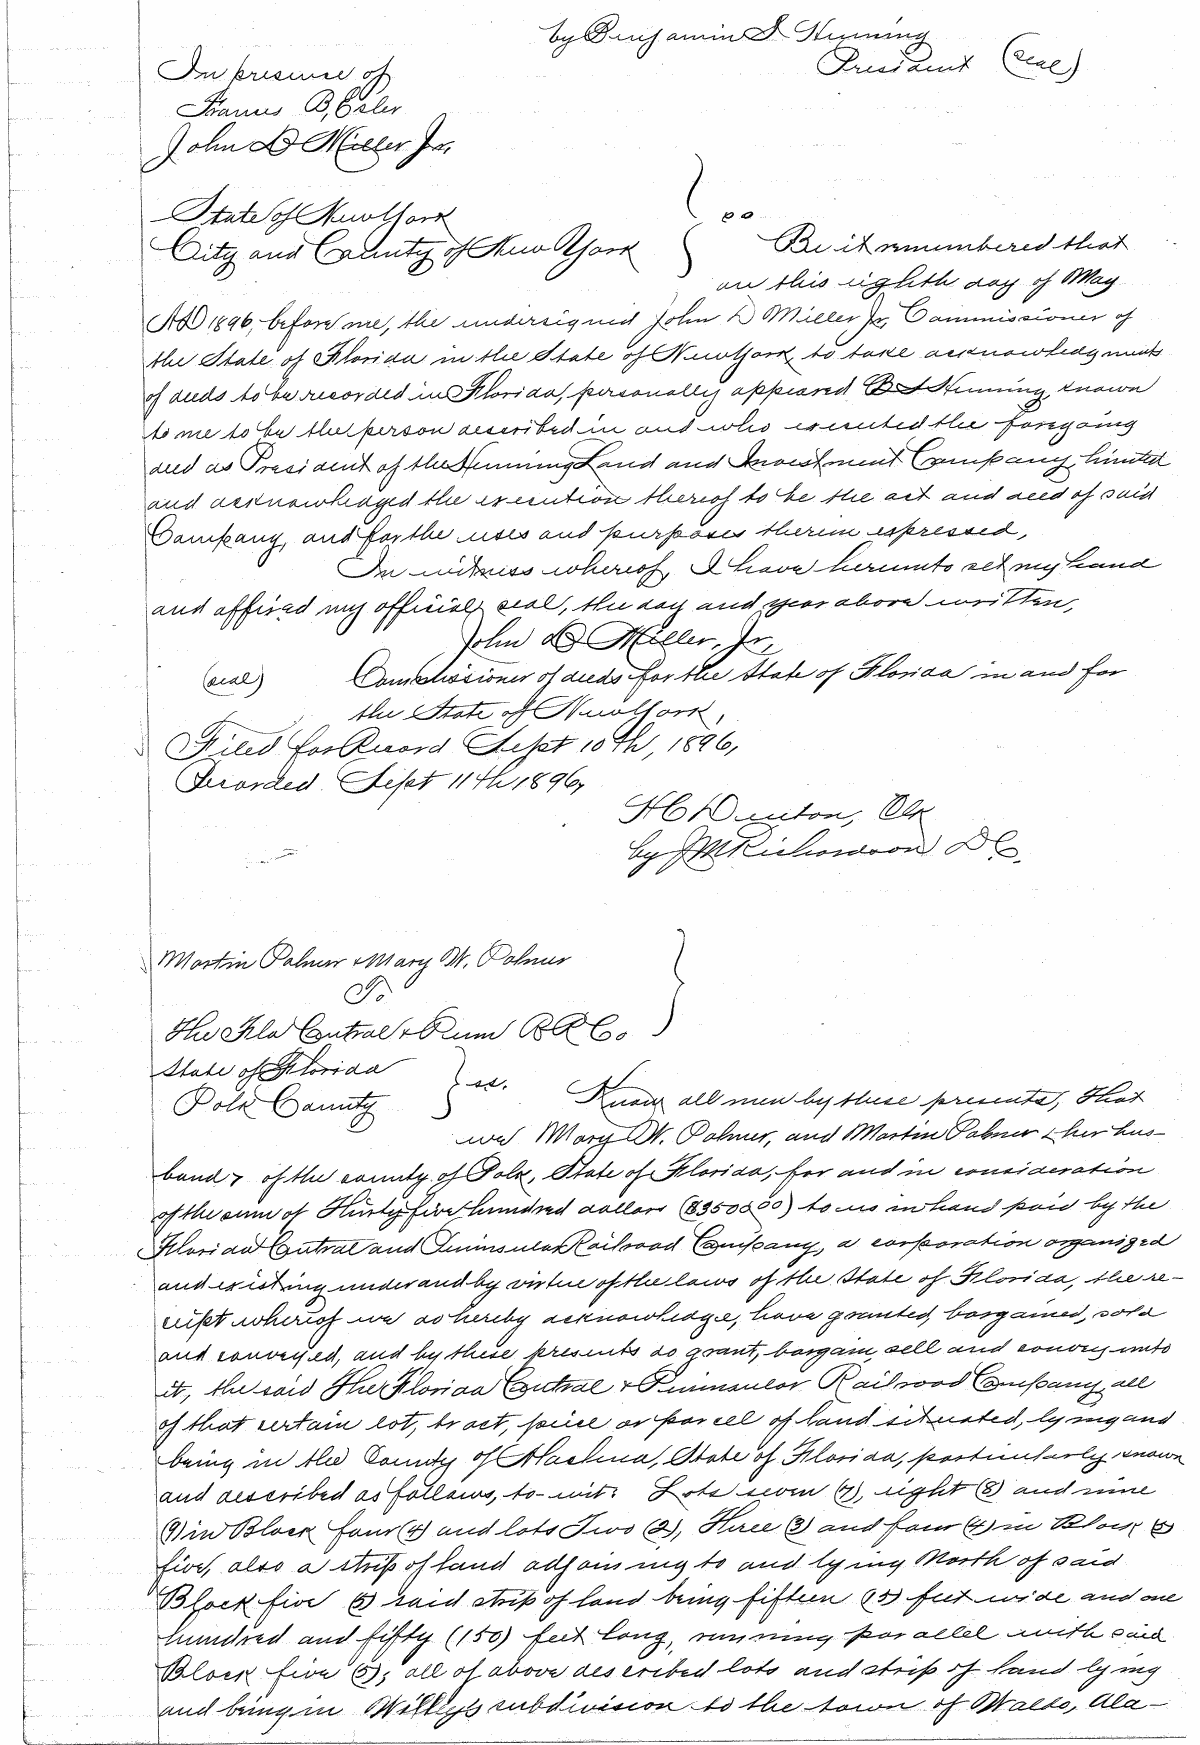 by Benjamin S Henning
President (seal)
In presence of
Francis B, Esler
John D Miller Jr,
State of New York
City and County of New York } ss
Be it remembered that
on this eighth day of May
AD 1896, before me, the undersigned John D Miller Jr, Commissioner of
the State of Florida in the State of New York, to take acknowledgments
of deeds to be recorded in Florida, personally appeared B S Henning, known
to me to be the person described in and who executed the foregoing
deed as President of the Henning Land and Investment Company, limited
and acknowledged the execution thereof to be the act and deed of said
Company, and for the uses and purposes therein expressed,
In witness whereof, I have hereunto set my hand
and affixed my official seal, the day and year above written,
John D Miller, Jr,
(seal) Commissioner of deeds for the State of Florida in and for
the State of New York,
Filed for Record Sept 10th, 1896,
Recorded Sept 11th 1896,
H C Denton, Clk
by J M Richardson D C,
Martin Palmer & Mary W. Palmer
To
The Fla Central & Penn R R Co.
State of Florida
Polk County } ss.
Know all men by these presents, That
we Mary W. Palmer, and Martin Palmer & her hus-
band, of the county of Polk, State of Florida, for and in consideration
of the sum of Thirty five hundred dollars ($3500.00) to us in hand paid by the
Florida Central and Peninsular Railroad Company, a corporation organized
and existing under and by virtue of the laws of the State of Florida, the re-
ceipt whereof we do hereby acknowledge, have granted, bargained, sold
and conveyed, and by these presents do grant, bargain, sell and convey unto
it, the said The Florida Central & Peninsular Railroad Company, all
of that certain lot, tract, piece or parcell of land situated, lying and
being in the County of Alachua, State of Florida, particularly known
and described as follows, to-wit: Lots seven (7), eight (8) and nine
(9) in Block four (4) and lots Two (2), Three (3) and four (4) in Block (5)
five, also a strip of land adjoining to and lying North of said
Block five (5) said strip of land being fifteen (15) feet wide and one
hundred and fifty (150) feet long, running parallel with said
Block five (5); all of above described lots and strip of land lying
and being in subdivision to the town of Waldo, Ala-